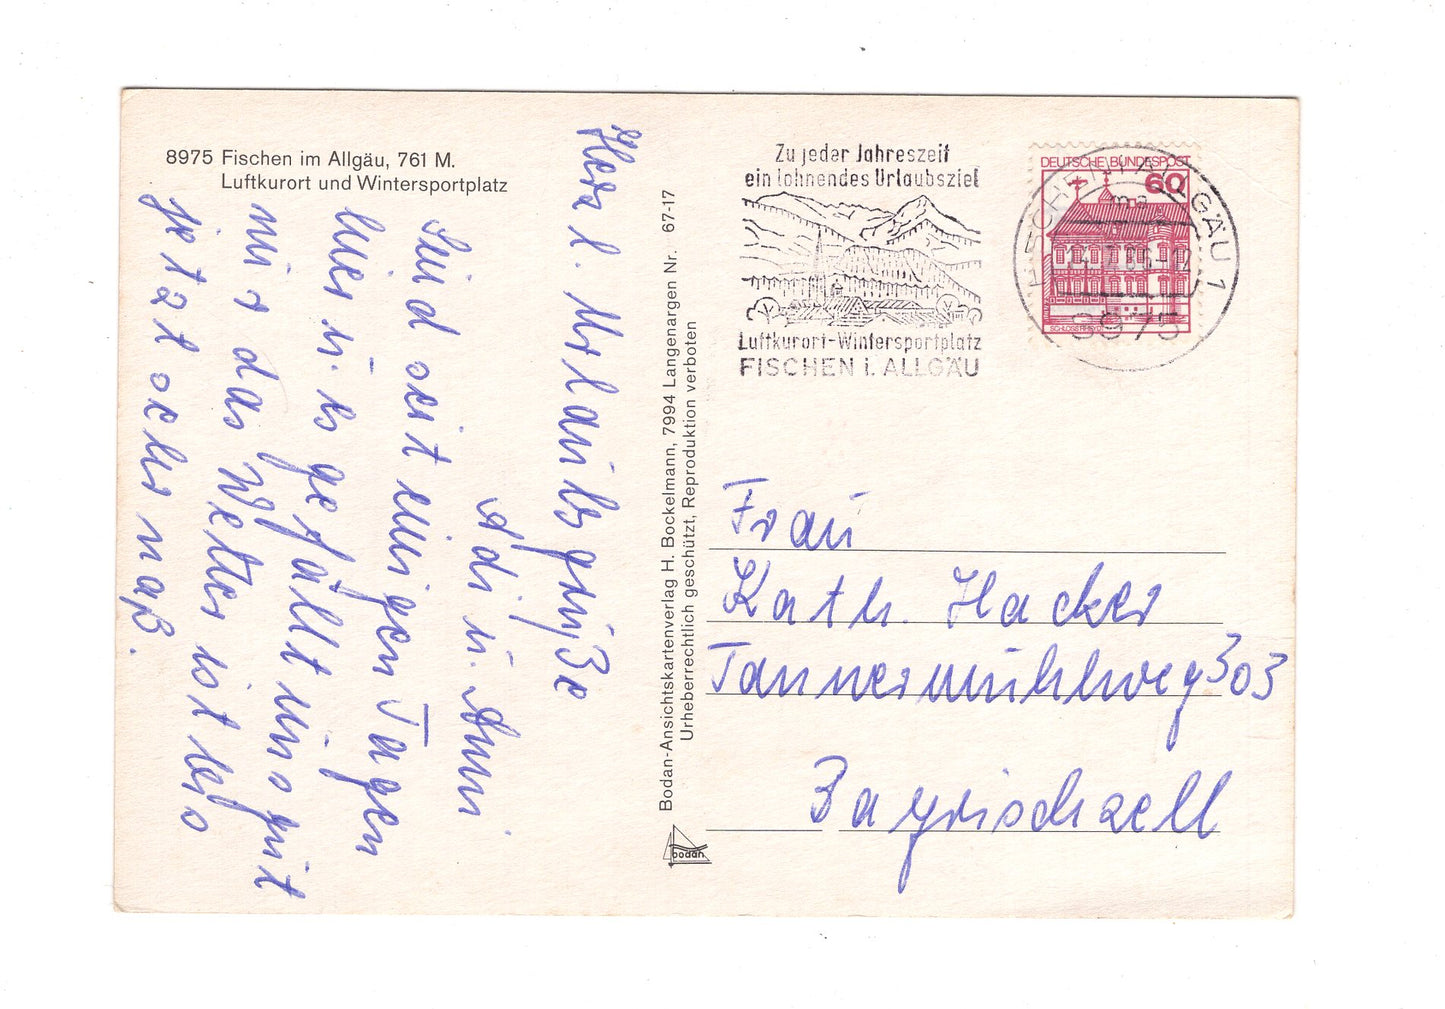 8975 Fischen im Allgäu, 761 M.
Luftkurort und Wintersportplatz
Herzl. Urlaubsgrüße
Adi u. Anni
Sind seit einigen Tagen
hier u. es gefällt uns gut
nur das Wetter ist teils
jetzt sehr naß.
Bodan-Ansichtskartenverlag H. Bockelmann, 7994 Langenargen Nr. 67-17
Urheberrechtlich geschützt, Reproduktion verboten
bodan
Zu jeder Jahreszeit
ein lohnendes Urlaubsziel
Luftkurort-Wintersportplatz
FISCHEN i. ALLGÄU
DEUTSCHE BUNDESPOST
60
SCHLOSS RHEYDT
FISCHEN I ALLGÄU 1
8975
Frau
Kath. Hacker
Tannermühlweg 303
Bayrischzell